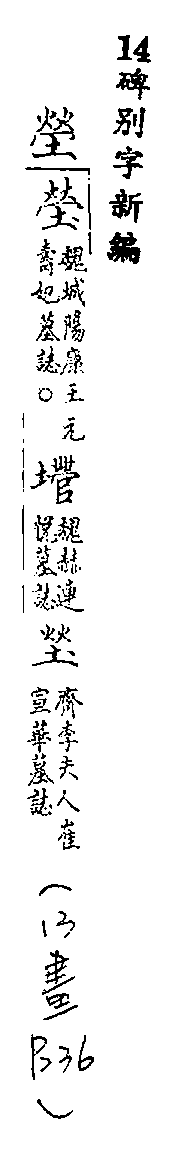 14碑別字新編
塋
塋
魏城陽康王元
壽妃墓誌。
魏赫連
悅墓誌
塋
齊李夫人崔
宣華墓誌
(13畫
P336)